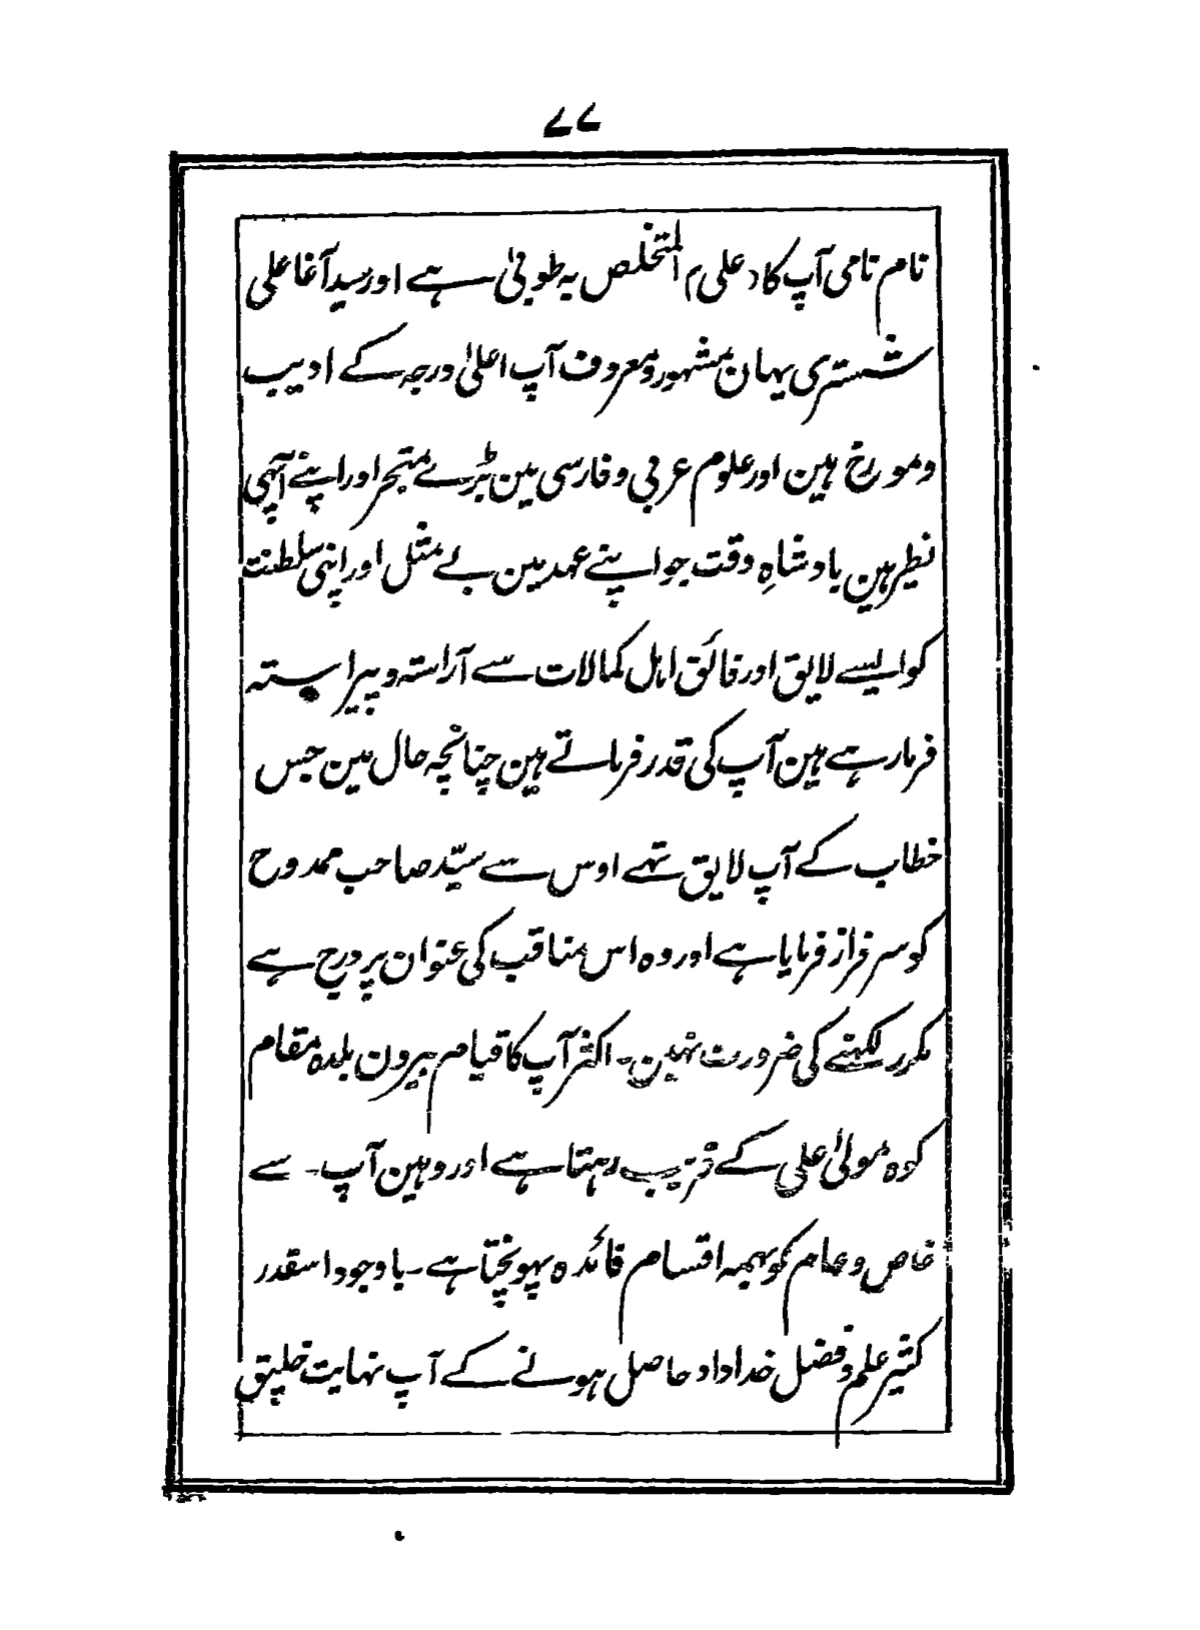 ۷۷
نام نامی آپ کا (علی) المتخلص بہ طوبیٰ ہے اور سید آغا علی
شستری یہان مشہور و معروف آپ اعلیٰ درجہ کے ادیب
و مورخ ہین اور علوم عربی و فارسی مین بڑے متبحر اور اپنے آپہی
نظیر ہین بادشاہِ وقت جو اپنے عہد مین بے مثل اور اپنی سلطنت
کو ایسے لایق اور فائق اہل کمالات سے آراستہ و پیراستہ
فرما رہے ہین آپ کی قدر فرماتے ہین چنانچہ حال مین جس
خطاب کے آپ لایق تہے اوس سے سیّد صاحب ممدوح
کو سرفراز فرمایا ہے اور وہ اس مناقب کی عنوان پر درج ہے
مکرر لکہنے کی ضرورت نہین۔ اکثر آپ کا قیام بیرون بلدہ مقام
کوہ مولیٰ علی کے قریب رہتا ہے اور وہین آپ۔ سے
خاص و عام کو بہمہ اقسام فائدہ پہونچتا ہے۔ باوجود اسقدر
کثیر علم و فضل خداداد حاصل ہونے کے آپ نہایت خلیق